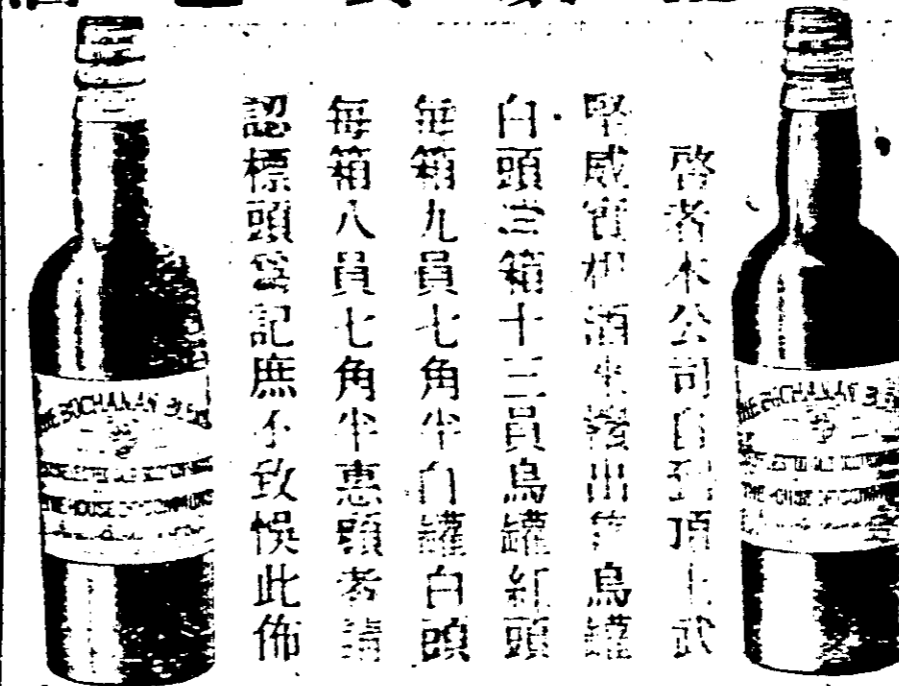 啓者本公司自到頂上武
堅威實根酒坐發出售烏罐
白頭每箱十三員烏罐紅頭
每箱九員七角半白罐白頭
每箱八員七角半惠顧者請
認標頭爲記庶不致悞此佈
THE BUCHANAN BLEND
THE HOUSE OF COMMONS
THE BUCHANAN BLEND
THE HOUSE OF COMMONS